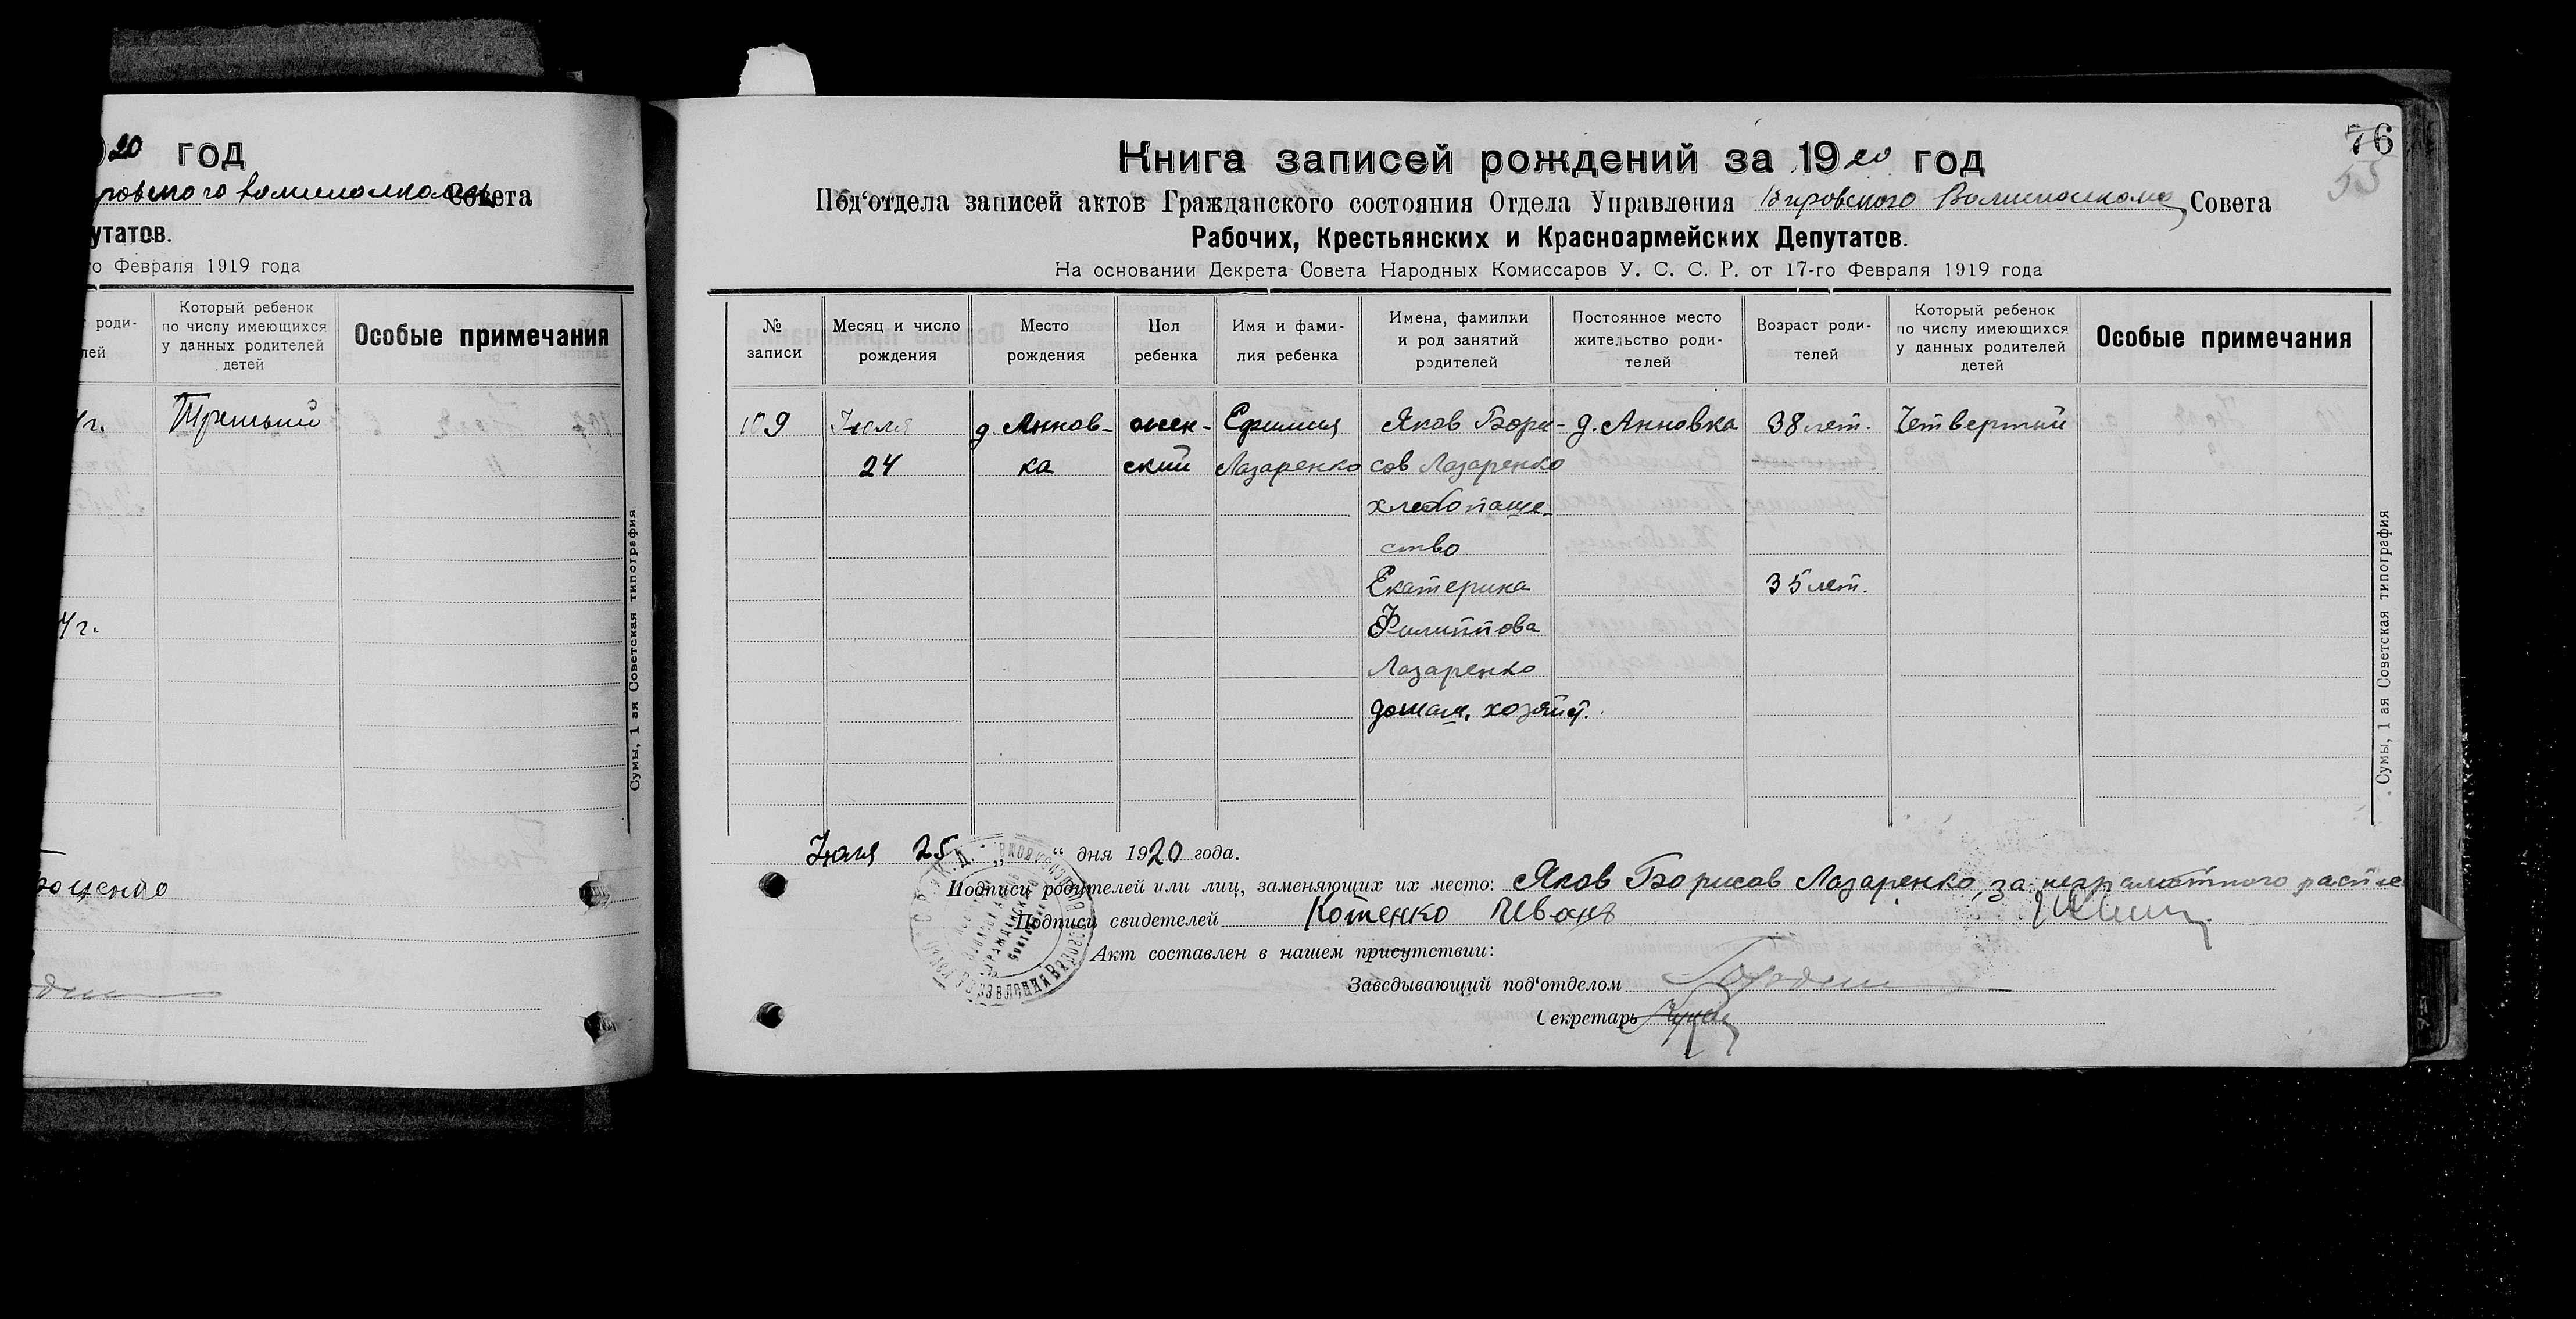 20 год
Совета
утатов.
го Февраля 1919 года
роди-
лей
Который ребенок
по числу имеющихся
у данных родителей
детей
Особые примечания
Третьий
Сумы, 1 ая Советская типография
76
55
Книга записей рождений за 1920 год
Под‘отдела записей актов Гражданского состояния Отдела Управления Волисполкома Совета
Рабочих, Крестьянских и Красноармейских Депутатов.
На основании Декрета Совета Народных Комиссаров У. С. С. Р. от 17-го Февраля 1919 года
№
записи
Месяц и число
рождения
Место
рождения
Пол
ребенка
Имя и фами-
лия ребенка
Имена, фамилии
и род занятий
родителей
Постоянное место
жительство роди-
телей
Возраст роди-
телей
Который ребенок
по числу имеющихся
у данных родителей
детей
Особые примечания
109
Июля
24
д. Аннов-
ка
жен-
ский
Ефимия
Лазаренко
Яков Бори-
сов Лазаренко
хлебопаше-
ство
Екатерина
Филиппова
Лазаренко
домаш. хозяйст.
д. Анновка
38 лет.
35 лет.
Четвертый
Сумы, 1 ая Советская типография
Июля 25 „ “ дня 1920 года.
Подписи родителей или лиц, заменяющих их место: Яков Борисов Лазаренко, за неграмотного распис
Подписи свидетелей Котенко Иванъ
Акт составлен в нашем присутствии:
Заведывающий под‘отделом
Секретарь